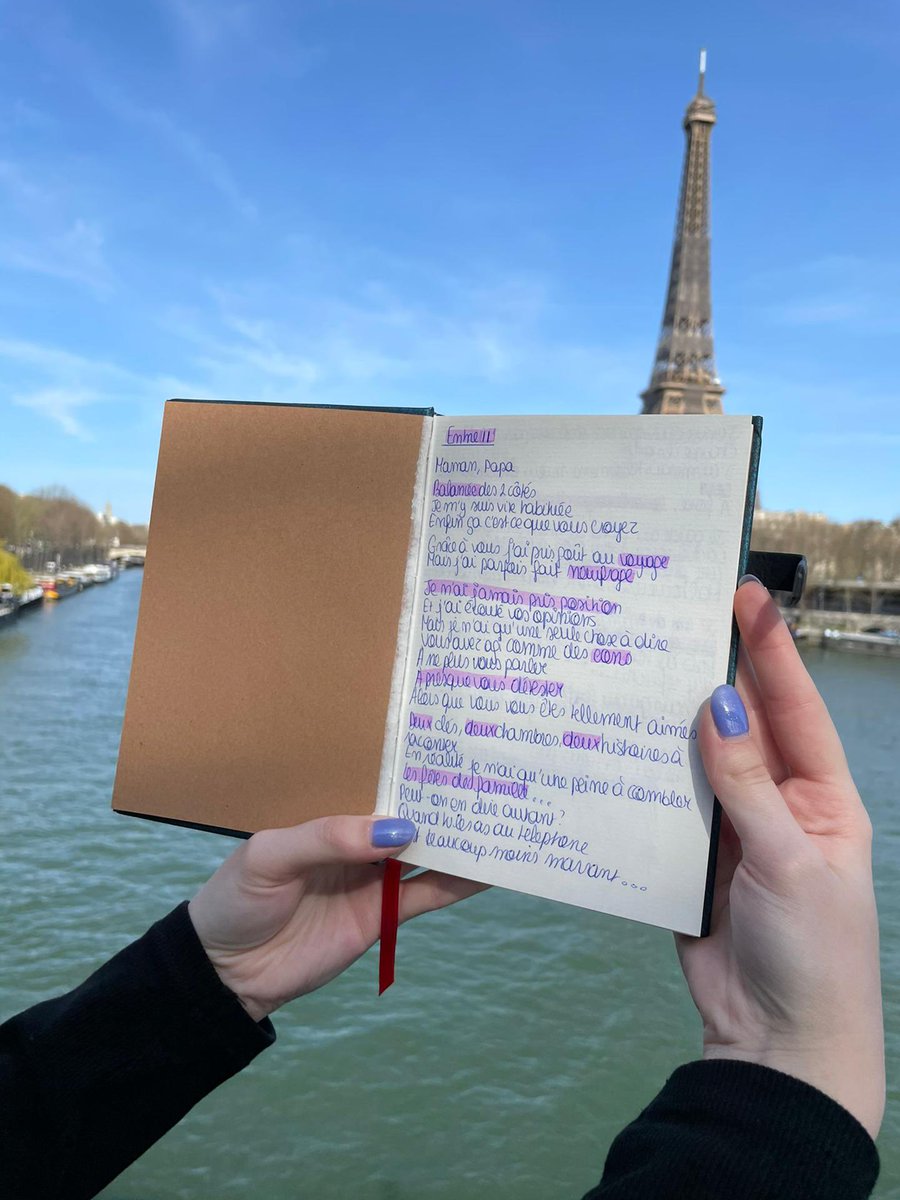 Entre II
Maman, Papa
Balancée des 2 côtés
Je m'y suis vite habituée
Enfin ça c'est ce que vous croyez
Grâce à vous j'ai pris goût au voyage
Mais j'ai parfois fait naufrage
Je n'ai jamais pris position
Et j'ai écouté vos opinions
Mais je n'ai qu'une seule chose à dire
Vous avez agi comme des cons
A ne plus vous parler
A presque vous détester
Alors que vous vous êtes tellement aimés
Deux clés, deux chambres, deux histoires à
raconter
En réalité je n'ai qu'une peine à combler
Les fêtes des familles...
Peut-on en dire autant ?
Quand tu les as au téléphone
beaucoup moins marrant...